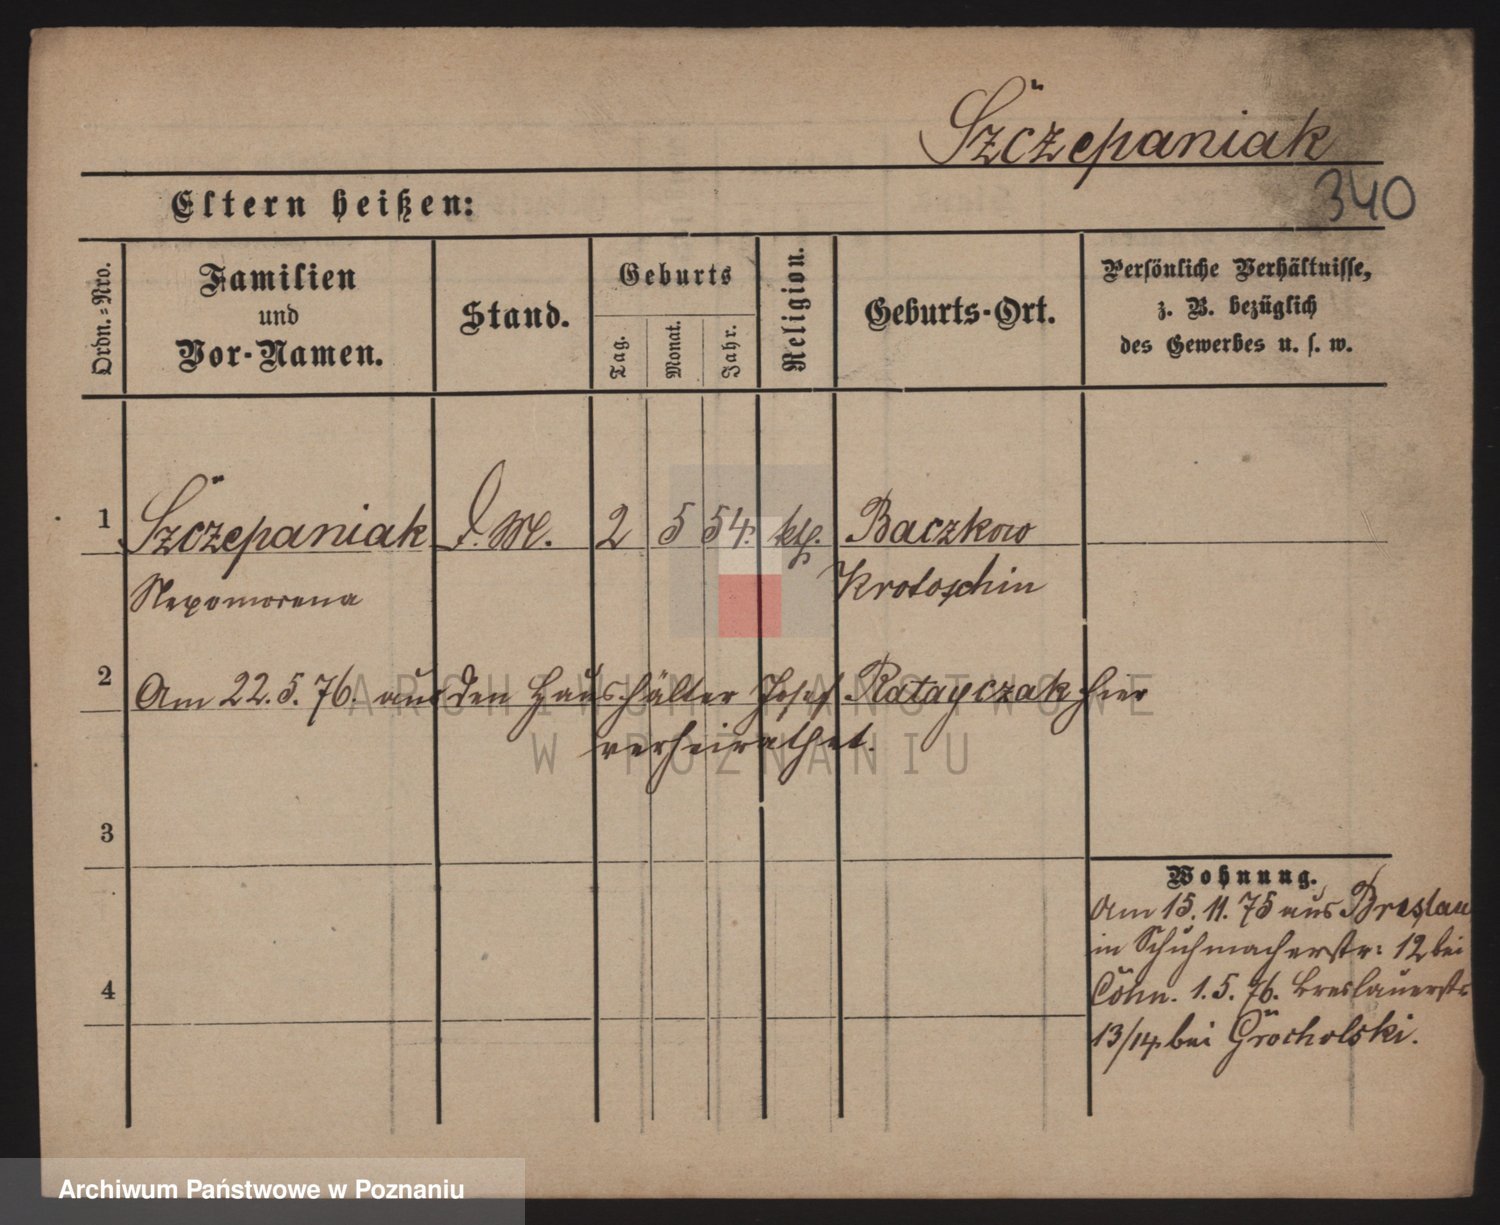 Szczepaniak
340
Eltern heißen:
Ordn.=Nro.
Familien
und
Vor-Namen.
Stand.
Geburts
Tag.
Monat.
Jahr.
Religion.
Geburts-Ort.
Persönliche Verhältnisse,
z. B. bezüglich
des Gewerbes u. s. w.
1 Szczepaniak D. M. 2 5 54. kth. Baczkow
Nepomocena Krotoschin
2 Am 22.5.76. an den Haushälter Josef Ratayczak hier
verheirathet.
3
4
Wohnung.
Am 15. 11. 75 aus Breslau
in Schuhmacherstr: 12 bei
Cöhn. 1. 5. 76. Breslauerstr
13/14. bei Grocholski.
ARCHIWUM PAŃSTWOWE
W POZNANIU
Archiwum Państwowe w Poznaniu